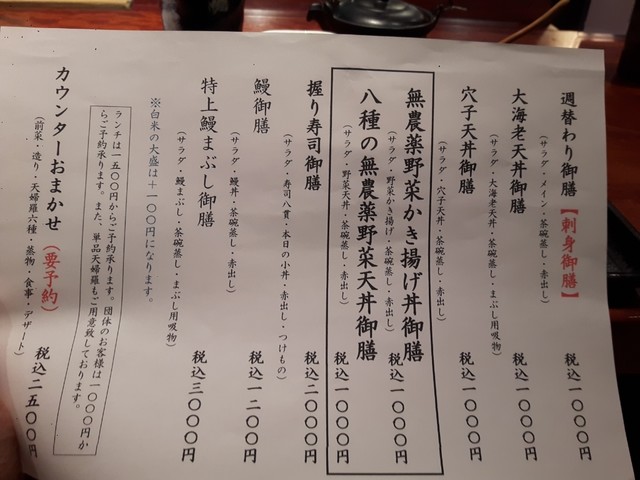 週替わり御膳【刺身御膳】 税込一〇〇〇円
（サラダ・メイン・茶碗蒸し・赤出し）
大海老天丼御膳 税込一〇〇〇円
（サラダ・大海老天丼・茶碗蒸し・まぶし用吸物）
穴子天丼御膳 税込一〇〇〇円
（サラダ・穴子天丼・茶碗蒸し・赤出し）
無農薬野菜かき揚げ丼御膳 税込一〇〇〇円
（サラダ・野菜かき揚げ・茶碗蒸し・赤出し）
八種の無農薬野菜天丼御膳 税込一〇〇〇円
（サラダ・野菜天丼・茶碗蒸し・赤出し）
握り寿司御膳 税込二〇〇〇円
（サラダ・寿司八貫・本日の小丼・赤出し・つけもの）
鰻御膳 税込一二〇〇円
（サラダ・鰻丼・茶碗蒸し・赤出し）
特上鰻まぶし御膳 税込三〇〇〇円
（サラダ・鰻まぶし・茶碗蒸し・まぶし用吸物）
※白米の大盛は＋一〇〇円になります。
ランチは一五〇〇円からご予約承ります。団体のお客様は一〇〇〇円か
らご予約承ります。また、単品天婦羅もご用意致しております。
カウンターおまかせ（要予約） 税込二五〇〇円
（前菜・造り・天婦羅六種・蒸物・食事・デザート）